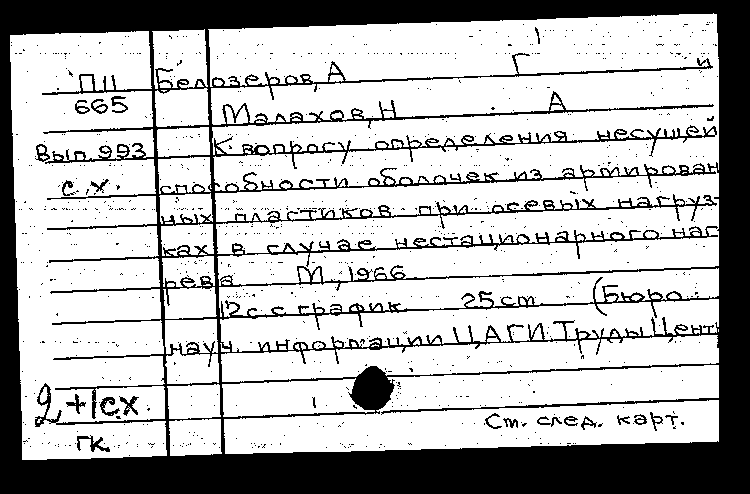 П11 Белозеров, А Г и
665 Малахов, Н А
Вып. 993 К вопросу определения несущей
с.х. способности оболочек из артирован
ных пластиков при осевых нагруз-
ках в случае нестационарного наг
рева М, 1966
12с с график 25 cm (Бюро
науч. информации ЦАГИ. Труды Цент
2,+1сх
гк. Ст. след. карт.